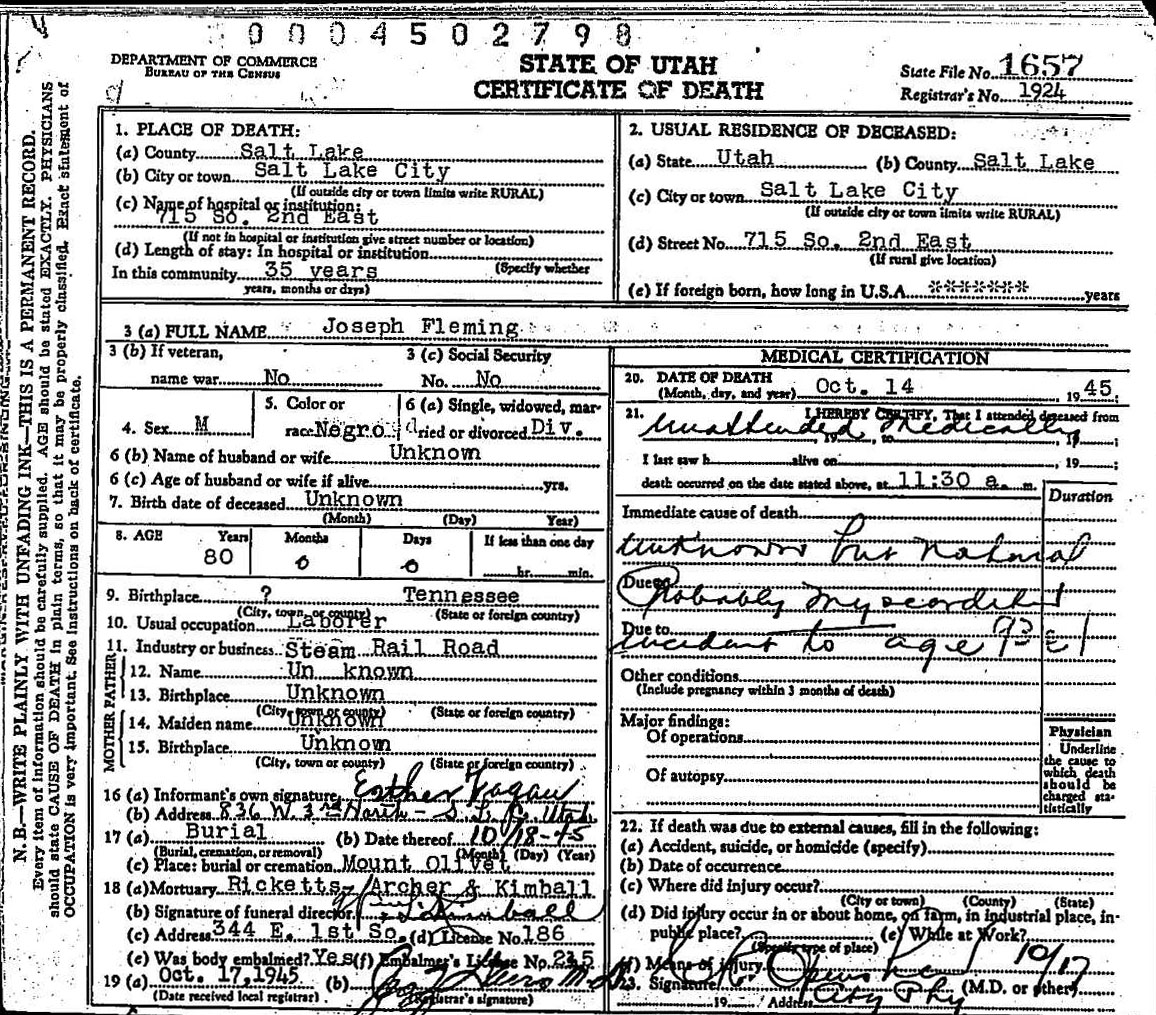 0004502798
DEPARTMENT OF COMMERCE
BUREAU OF THE CENSUS
STATE OF UTAH
CERTIFICATE OF DEATH
State File No. 1657
Registrar's No. 1924
N.B.—WRITE PLAINLY WITH UNFADING INK—THIS IS A PERMANENT RECORD.
Every item of information should be carefully supplied. AGE should be stated EXACTLY. PHYSICIANS
should state CAUSE OF DEATH in plain terms, so that it may be properly classified. Exact statement of
OCCUPATION is very important. See instructions on back of certificate.
1. PLACE OF DEATH:
(a) County Salt Lake
(b) City or town Salt Lake City
(If outside city or town limits write RURAL)
(c) Name of hospital or institution:
715 So. 2nd East
(If not in hospital or institution give street number or location)
(d) Length of stay: In hospital or institution
(Specify whether
In this community 35 years
years, months or days)
2. USUAL RESIDENCE OF DECEASED:
(a) State Utah (b) County Salt Lake
(c) City or town Salt Lake City
(If outside city or town limits write RURAL)
(d) Street No. 715 So. 2nd East
(If rural give location)
(e) If foreign born, how long in U.S.A. ******* years
3 (a) FULL NAME Joseph Fleming
3 (b) If veteran,
name war No
3 (c) Social Security
No. No
4. Sex M
5. Color or
race Negro
6 (a) Single, widowed, mar-
ried or divorced Div.
6 (b) Name of husband or wife Unknown
6 (c) Age of husband or wife if alive yrs.
7. Birth date of deceased Unknown
(Month) (Day) Year)
8. AGE Years Months Days If less than one day
80 0 0 hr. min.
9. Birthplace ? Tennessee
(City, town, or county) (State or foreign country)
10. Usual occupation Laborer
11. Industry or business Steam Rail Road
FATHER
12. Name Un known
13. Birthplace Unknown
(City town or county) (State or foreign country)
MOTHER
14. Maiden name Unknown
15. Birthplace Unknown
(City, town or county) (State or foreign country)
16 (a) Informant's own signature Esther Fagan
(b) Address 836 W. 3rd North - S. L. C. Utah
17 (a) Burial (b) Date thereof 10/18-45
(Burial, cremation, or removal) (Month) (Day) (Year)
(c) Place: burial or cremation Mount Olivet
18 (a) Mortuary Ricketts-/Archer & Kimball
(b) Signature of funeral director Kimball
(c) Address 344 E. 1st So. (d) License No. 186
(e) Was body embalmed? Yes (f) Embalmer's License No. 215
19 (a) Oct. 17, 1945 (b) M.D.
(Date received local registrar) (Registrar's signature)
MEDICAL CERTIFICATION
20. DATE OF DEATH
(Month, day, and year) Oct. 14 1945
21. I HEREBY CERTIFY, That I attended deceased from
Unattended Medically
, 19 , to , 19 ;
I last saw h alive on , 19 ;
death occurred on the date stated above, at 11:30 a. m.
Duration
Immediate cause of death
Unknown but natural
Due to Probably
Due to incident to age
Other conditions
(Include pregnancy within 3 months of death)
Major findings:
Of operations
Of autopsy
Physician
Underline
the cause to
which death
should be
charged sta-
tistically
22. If death was due to external causes, fill in the following:
(a) Accident, suicide, or homicide (specify)
(b) Date of occurrence
(c) Where did injury occur?
(City or town) (County) (State)
(d) Did injury occur in or about home, on farm, in industrial place, in
public place? (e) While at Work?
(Specify type of place)
(f) Means of injury 10/17
23. Signature (M.D. or other)
19 Address City Phy